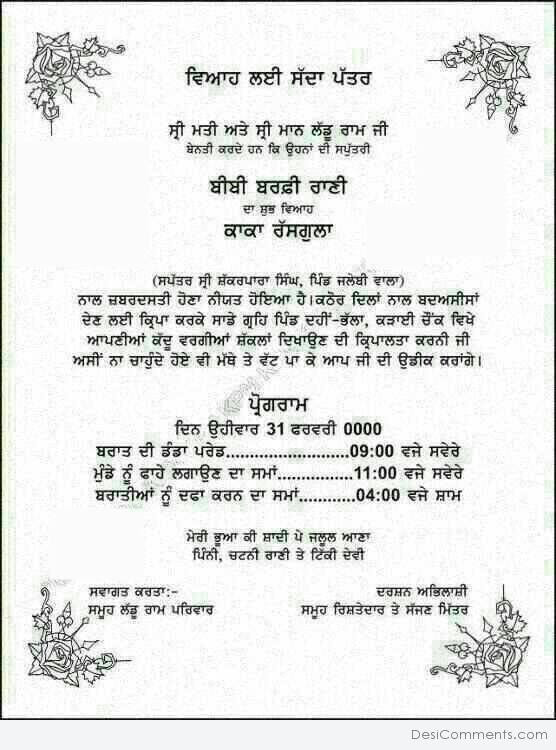 ਵਿਆਹ ਲਈ ਸੱਦਾ ਪੱਤਰ
ਸ੍ਰੀ ਮਤੀ ਅਤੇ ਸ੍ਰੀ ਮਾਨ ਲੱਡੂ ਰਾਮ ਜੀ
ਬੇਨਤੀ ਕਰਦੇ ਹਨ ਕਿ ਉਹਨਾਂ ਦੀ ਸਪੁੱਤਰੀ
ਬੀਬੀ ਬਰਫ਼ੀ ਰਾਣੀ
ਦਾ ਸ਼ੁਭ ਵਿਆਹ
ਕਾਕਾ ਰੱਸਗੁਲਾ
(ਸਪੱਤਰ ਸ੍ਰੀ ਸ਼ੱਕਰਪਾਰਾ ਸਿੰਘ, ਪਿੰਡ ਜਲੇਬੀ ਵਾਲਾ)
ਨਾਲ ਜ਼ਬਰਦਸਤੀ ਹੋਣਾ ਨੀਯਤ ਹੋਇਆ ਹੈ।ਕਠੋਰ ਦਿਲਾਂ ਨਾਲ ਬਦਅਸੀਸਾਂ
ਦੇਣ ਲਈ ਕ੍ਰਿਪਾ ਕਰਕੇ ਸਾਡੇ ਗ੍ਰਹਿ ਪਿੰਡ ਦਹੀਂ-ਭੱਲਾ, ਕੜਾਈ ਚੌਂਕ ਵਿਖੇ
ਆਪਣੀਆਂ ਕੱਦੂ ਵਰਗੀਆਂ ਸ਼ੱਕਲਾਂ ਦਿਖਾਉਣ ਦੀ ਕ੍ਰਿਪਾਲਤਾ ਕਰਨੀ ਜੀ
ਅਸੀਂ ਨਾ ਚਾਹੁੰਦੇ ਹੋਏ ਵੀ ਮੱਥੇ ਤੇ ਵੱਟ ਪਾ ਕੇ ਆਪ ਜੀ ਦੀ ਉਡੀਕ ਕਰਾਂਗੇ।
ਪ੍ਰੋਗਰਾਮ
ਦਿਨ ਉਹੀਵਾਰ 31 ਫਰਵਰੀ 0000
ਬਰਾਤ ਦੀ ਡੰਡਾ ਪਰੇਡ.........................09:00 ਵਜੇ ਸਵੇਰੇ
ਮੁੰਡੇ ਨੂੰ ਫਾਹੇ ਲਗਾਉਣ ਦਾ ਸਮਾਂ................11:00 ਵਜੇ ਸਵੇਰੇ
ਬਰਾਤੀਆਂ ਨੂੰ ਦਫਾ ਕਰਨ ਦਾ ਸਮਾਂ............04:00 ਵਜੇ ਸ਼ਾਮ
ਮੇਰੀ ਭੂਆ ਕੀ ਸ਼ਾਦੀ ਪੇ ਜਲੂਲ ਆਣਾ
ਪਿੰਨੀ, ਚਟਨੀ ਰਾਣੀ ਤੇ ਟਿੱਕੀ ਦੇਵੀ
ਸਵਾਗਤ ਕਰਤਾ:-
ਸਮੂਹ ਲੱਡੂ ਰਾਮ ਪਰਿਵਾਰ
ਦਰਸ਼ਨ ਅਭਿਲਾਸ਼ੀ
ਸਮੂਹ ਰਿਸ਼ਤੇਦਾਰ ਤੇ ਸੱਜਣ ਮਿੱਤਰ
DesiComments.com